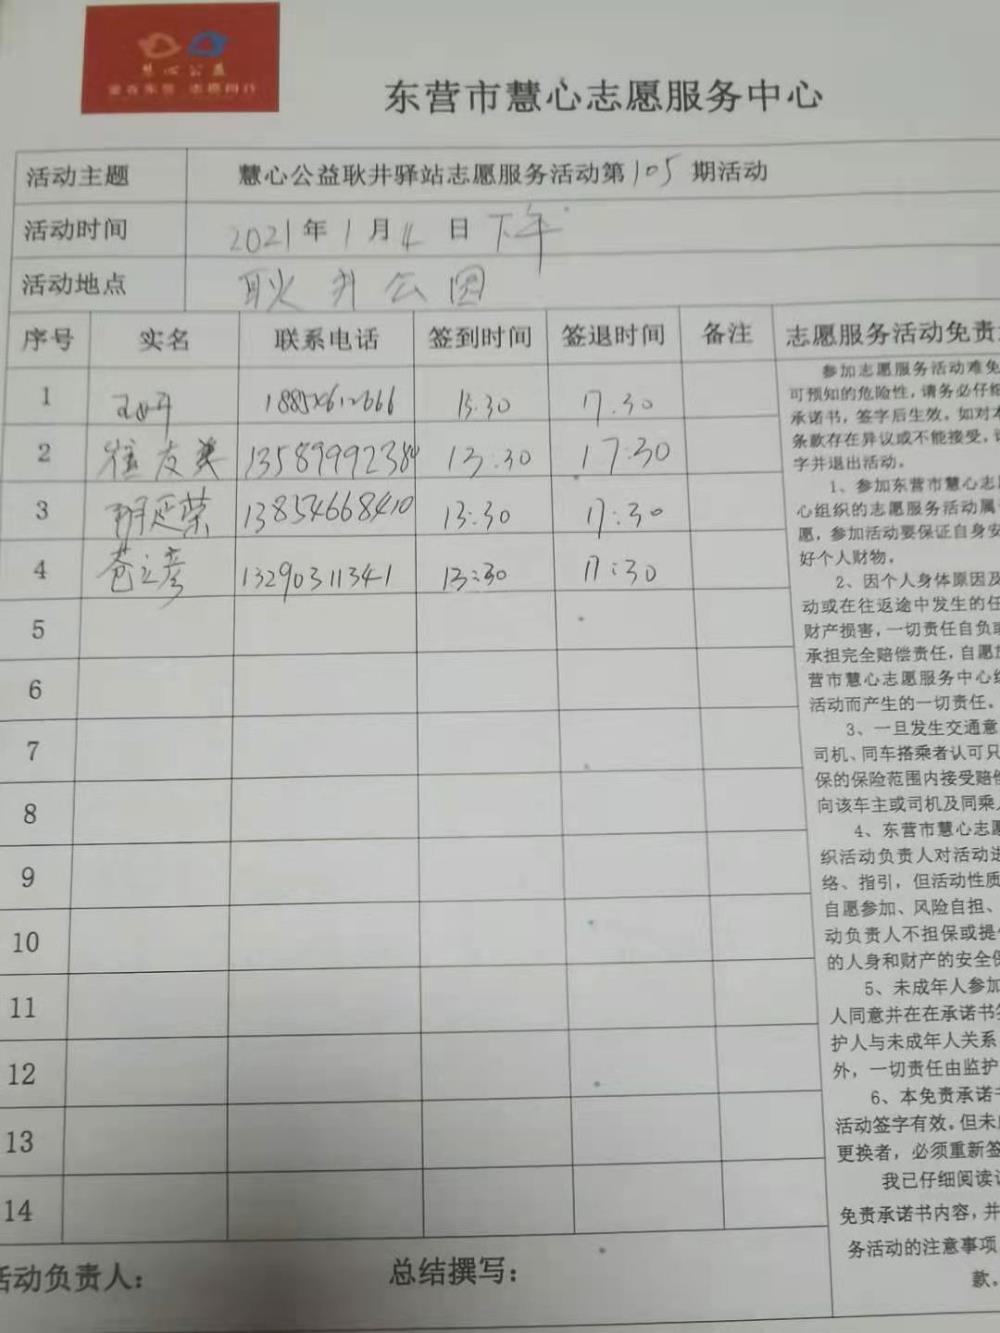 慧心公益
爱在东营 志愿同行
东营市慧心志愿服务中心
活动主题 慧心公益耿井驿站志愿服务活动第105期活动
活动时间 2021年1月4日下午
活动地点 耿井公园
序号 实名 联系电话 签到时间 签退时间 备注 志愿服务活动免责
1 13:30 17:30
2 崔友美 13589992384 13:30 17:30
3 延荣 13854668410 13:30 17:30
4 苍之彦 13290311341 13:30 17:30
5
6
7
8
9
10
11
12
13
14
参加志愿服务活动难免
可预知的危险性，请务必仔细
承诺书，签字后生效。如对本
条款存在异议或不能接受，
字并退出活动。
1、参加东营市慧心志
心组织的志愿服务活动属
愿，参加活动要保证自身安
好个人财物。
2、因个人身体原因及
动或在往返途中发生的任
财产损害，一切责任自负或
承担完全赔偿责任，自愿放
营市慧心志愿服务中心组
活动而产生的一切责任。
3、一旦发生交通意
司机、同车搭乘者认可只
保的保险范围内接受赔偿
向该车主或司机及同乘人
4、东营市慧心志愿
织活动负责人对活动进
络、指引，但活动性质
自愿参加、风险自担、
动负责人不担保或提供
的人身和财产的安全保
5、未成年人参加
人同意并在在承诺书签
护人与未成年人关系
外，一切责任由监护
6、本免责承诺书
活动签字有效。但未
更换者，必须重新签
我已仔细阅读
免责承诺书内容，并
务活动的注意事项
款。
活动负责人： 总结撰写：